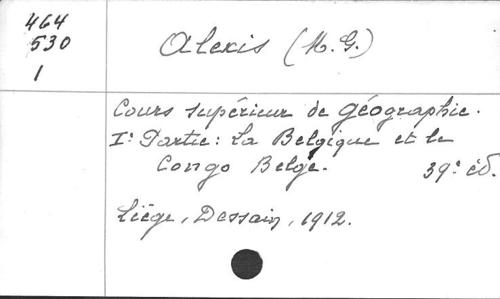 464
530
1
Alexis (M. G.)
Cours supérieur de géographie.
Iᵉ Partie: La Belgique et le
Congo Belge. 39ᵉ éd.
Liège, Dessain, 1912.